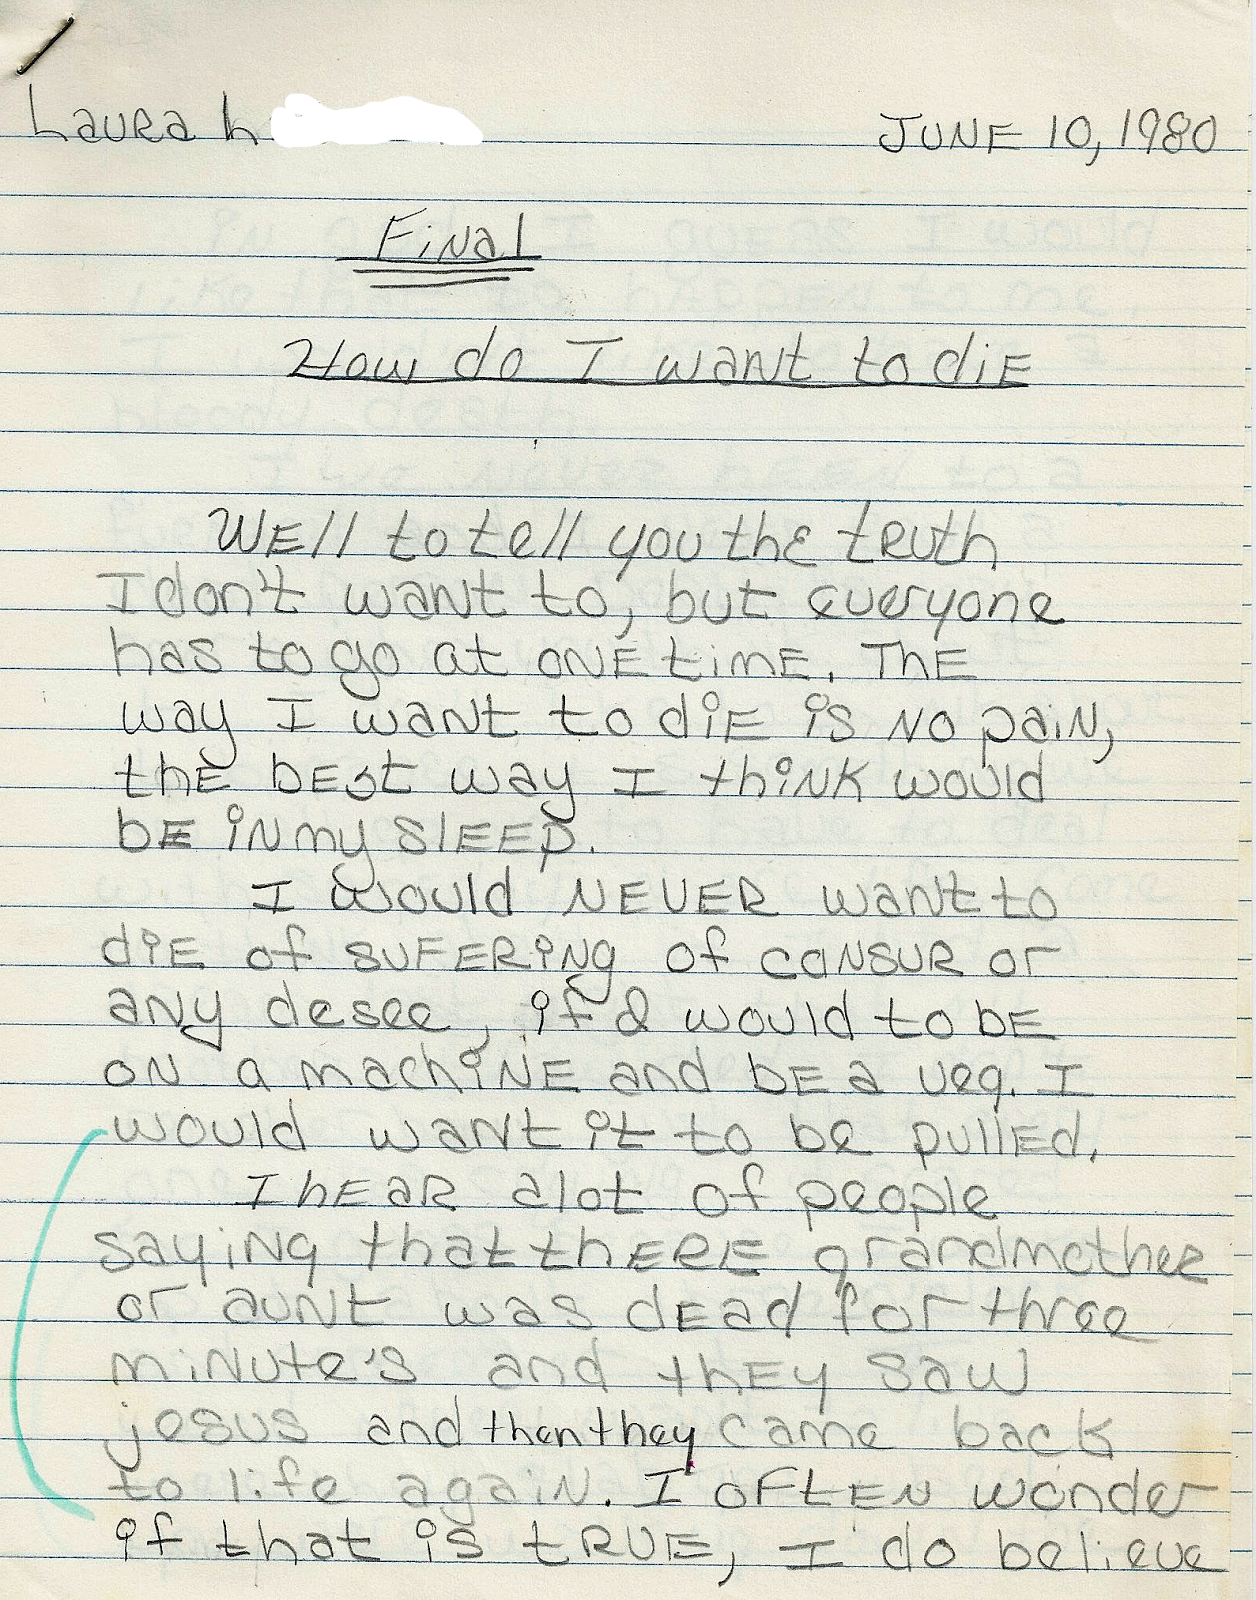 Laura L
JUNE 10, 1980
Final
How do I want to die
Well to tell you the truth
I don't want to, but everyone
has to go at one time. The
way I want to die is no pain,
the best way I think would
be in my sleep.
I would never want to
die of sufering of cansur or
any desee, if I would to be
on a machine and be a veg. I
would want it to be pulled.
I hear alot of people
saying that there grandmother
or aunt was dead for three
minute's and they saw
jesus and then they came back
to life again. I often wonder
if that is true, I do believe